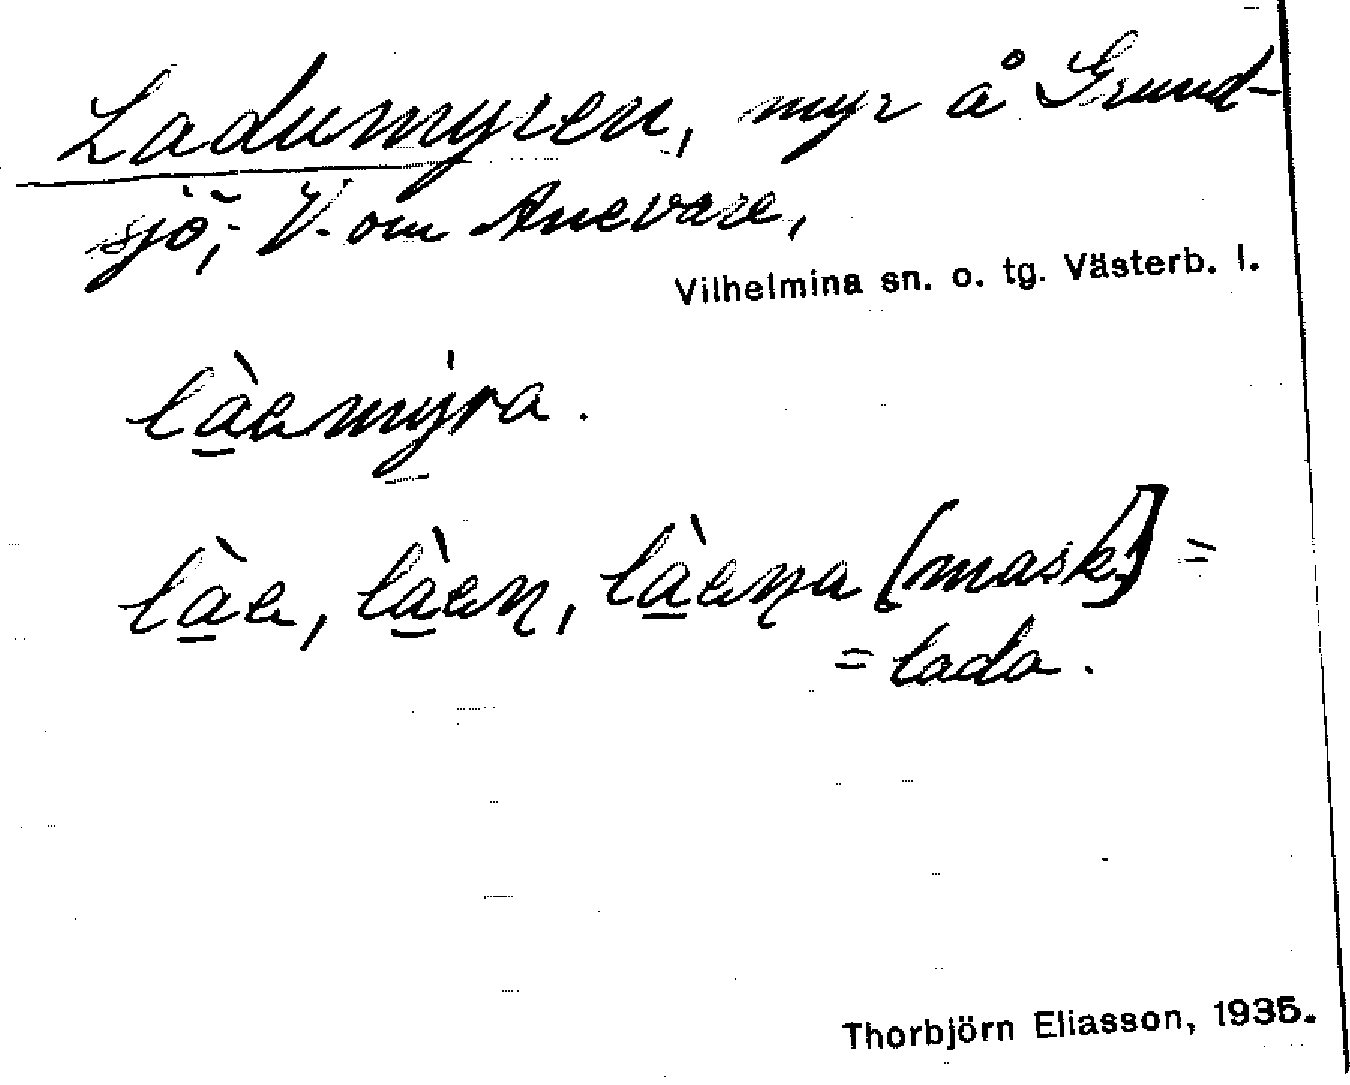 Ladumyren, myr å Grund-
sjö, V. om Anevare,
Vilhelmina sn. o. tg. Västerb. l.
làamýra.
làa, làan, làaŋa [mask.] =
= lada.
Thorbjörn Eliasson, 1935.